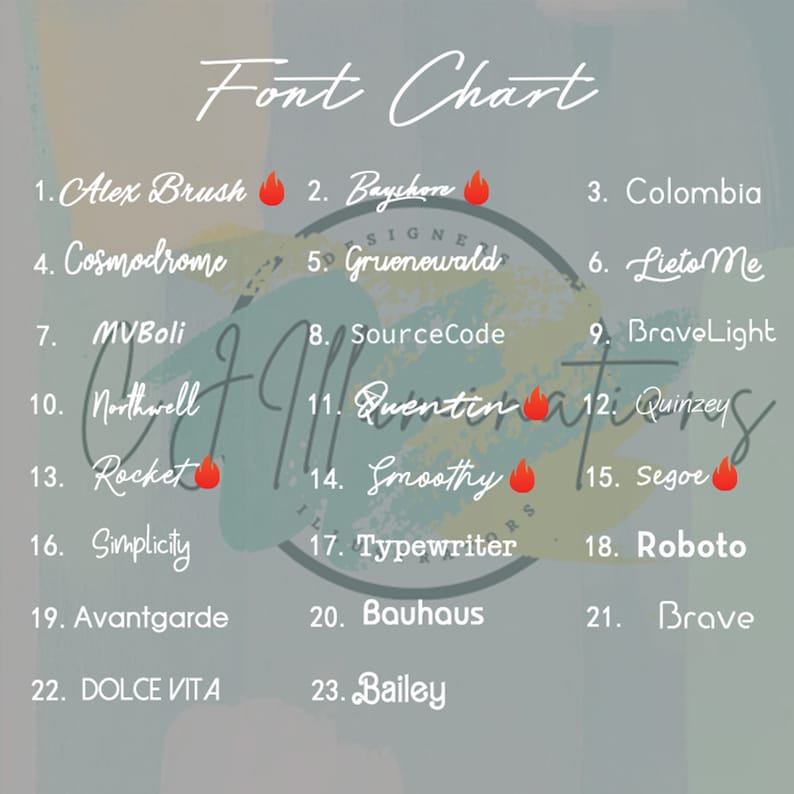 Font Chart
1. Alex Brush🔥 2. Bayshore🔥 3. Colombia
4. Cosmodrome 5. Gruenewald 6. LietoMe
7. MVBoli 8. SourceCode 9. BraveLight
10. Northwell 11. Quentin🔥 12. Quinzey
13. Rocket🔥 14. Smoothy🔥 15. Segoe🔥
16. Simplicity 17. Typewriter 18. Roboto
19. Avantgarde 20. Bauhaus 21. Brave
22. DOLCE VITA 23. Bailey
DESIGNERS
CJ Illuminations
ILLUSTRATORS